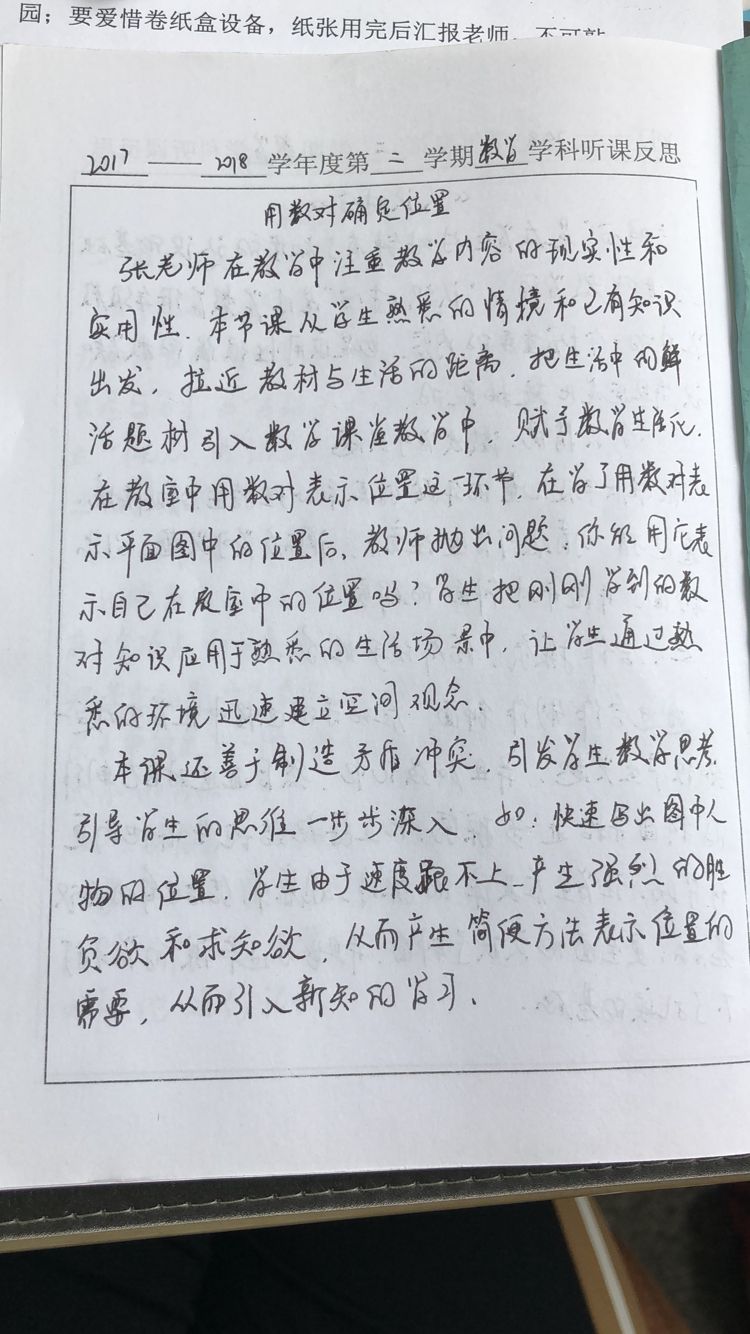 园；要爱惜卷纸盒设备，纸张用完后汇报老师，不可敲
2017 —— 2018 学年度第 二 学期 数学 学科听课反思
用数对确定位置
张老师在教学中注重数学内容的现实性和
实用性．本节课从学生熟悉的情境和已有知识
出发，拉近教材与生活的距离，把生活中的鲜
活题材引入数学课堂教学中，赋予数学生活化．
在教室中用数对表示位置这一环节，在学了用数对表
示平面图中的位置后，教师抛出问题：你能用它表
示自己在教室中的位置吗？学生把刚刚学到的数
对知识应用于熟悉的生活场景中，让学生通过熟
悉的环境迅速建立空间观念．
本课还善于制造矛盾冲突，引发学生数学思考，
引导学生的思维一步步深入．如：快速写出图中人
物的位置．学生由于速度跟不上，产生强烈的胜
负欲和求知欲，从而产生简便方法表示位置的
需要，从而引入新知的学习．